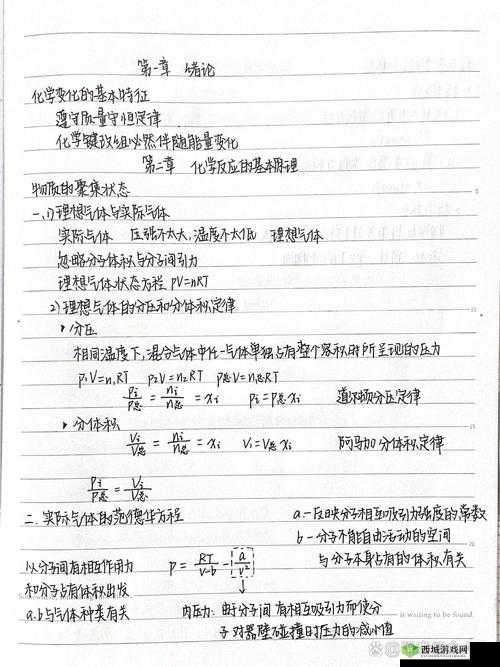 第一章 绪论
化学变化的基本特征
遵守质量守恒定律
化学键改组必然伴随能量变化
第二章 化学反应的基本原理
物质的聚集状态
一、1) 理想气体与实际气体
实际气体 压强不太大，温度不太低 理想气体
忽略分子体积与分子间引力
理想气体状态方程 PV=nRT
2) 理想气体的分压和分体积定律
·分压
相同温度下，混合气体中任一气体单独占有整个容积时所呈现的压力
p₁V=n₁RT p₂V=n₂RT p总V=n总RT
pᵢ/p总 = nᵢ/n总 = xᵢ pᵢ=p总xᵢ 道尔顿分压定律
·分体积
Vᵢ/V总 = nᵢ/n总 = xᵢ Vᵢ=V总xᵢ 阿马加分体积定律
pᵢ/p总 = Vᵢ/V总
二、实际气体的范德华方程
a-反映分子相互吸引力强度的常数
b-分子不能自由活动的空间
与分子本身占有的体积有关
以分子间有相互作用力
和分子占有体积出发
a.b与气体种类有关
p = RT/(v-b) - a/v²
↓
内压力：由于分子间有相互吸引力而使分
子对器壁碰撞时压力的减小值
is waiting to be found.
西城游戏网